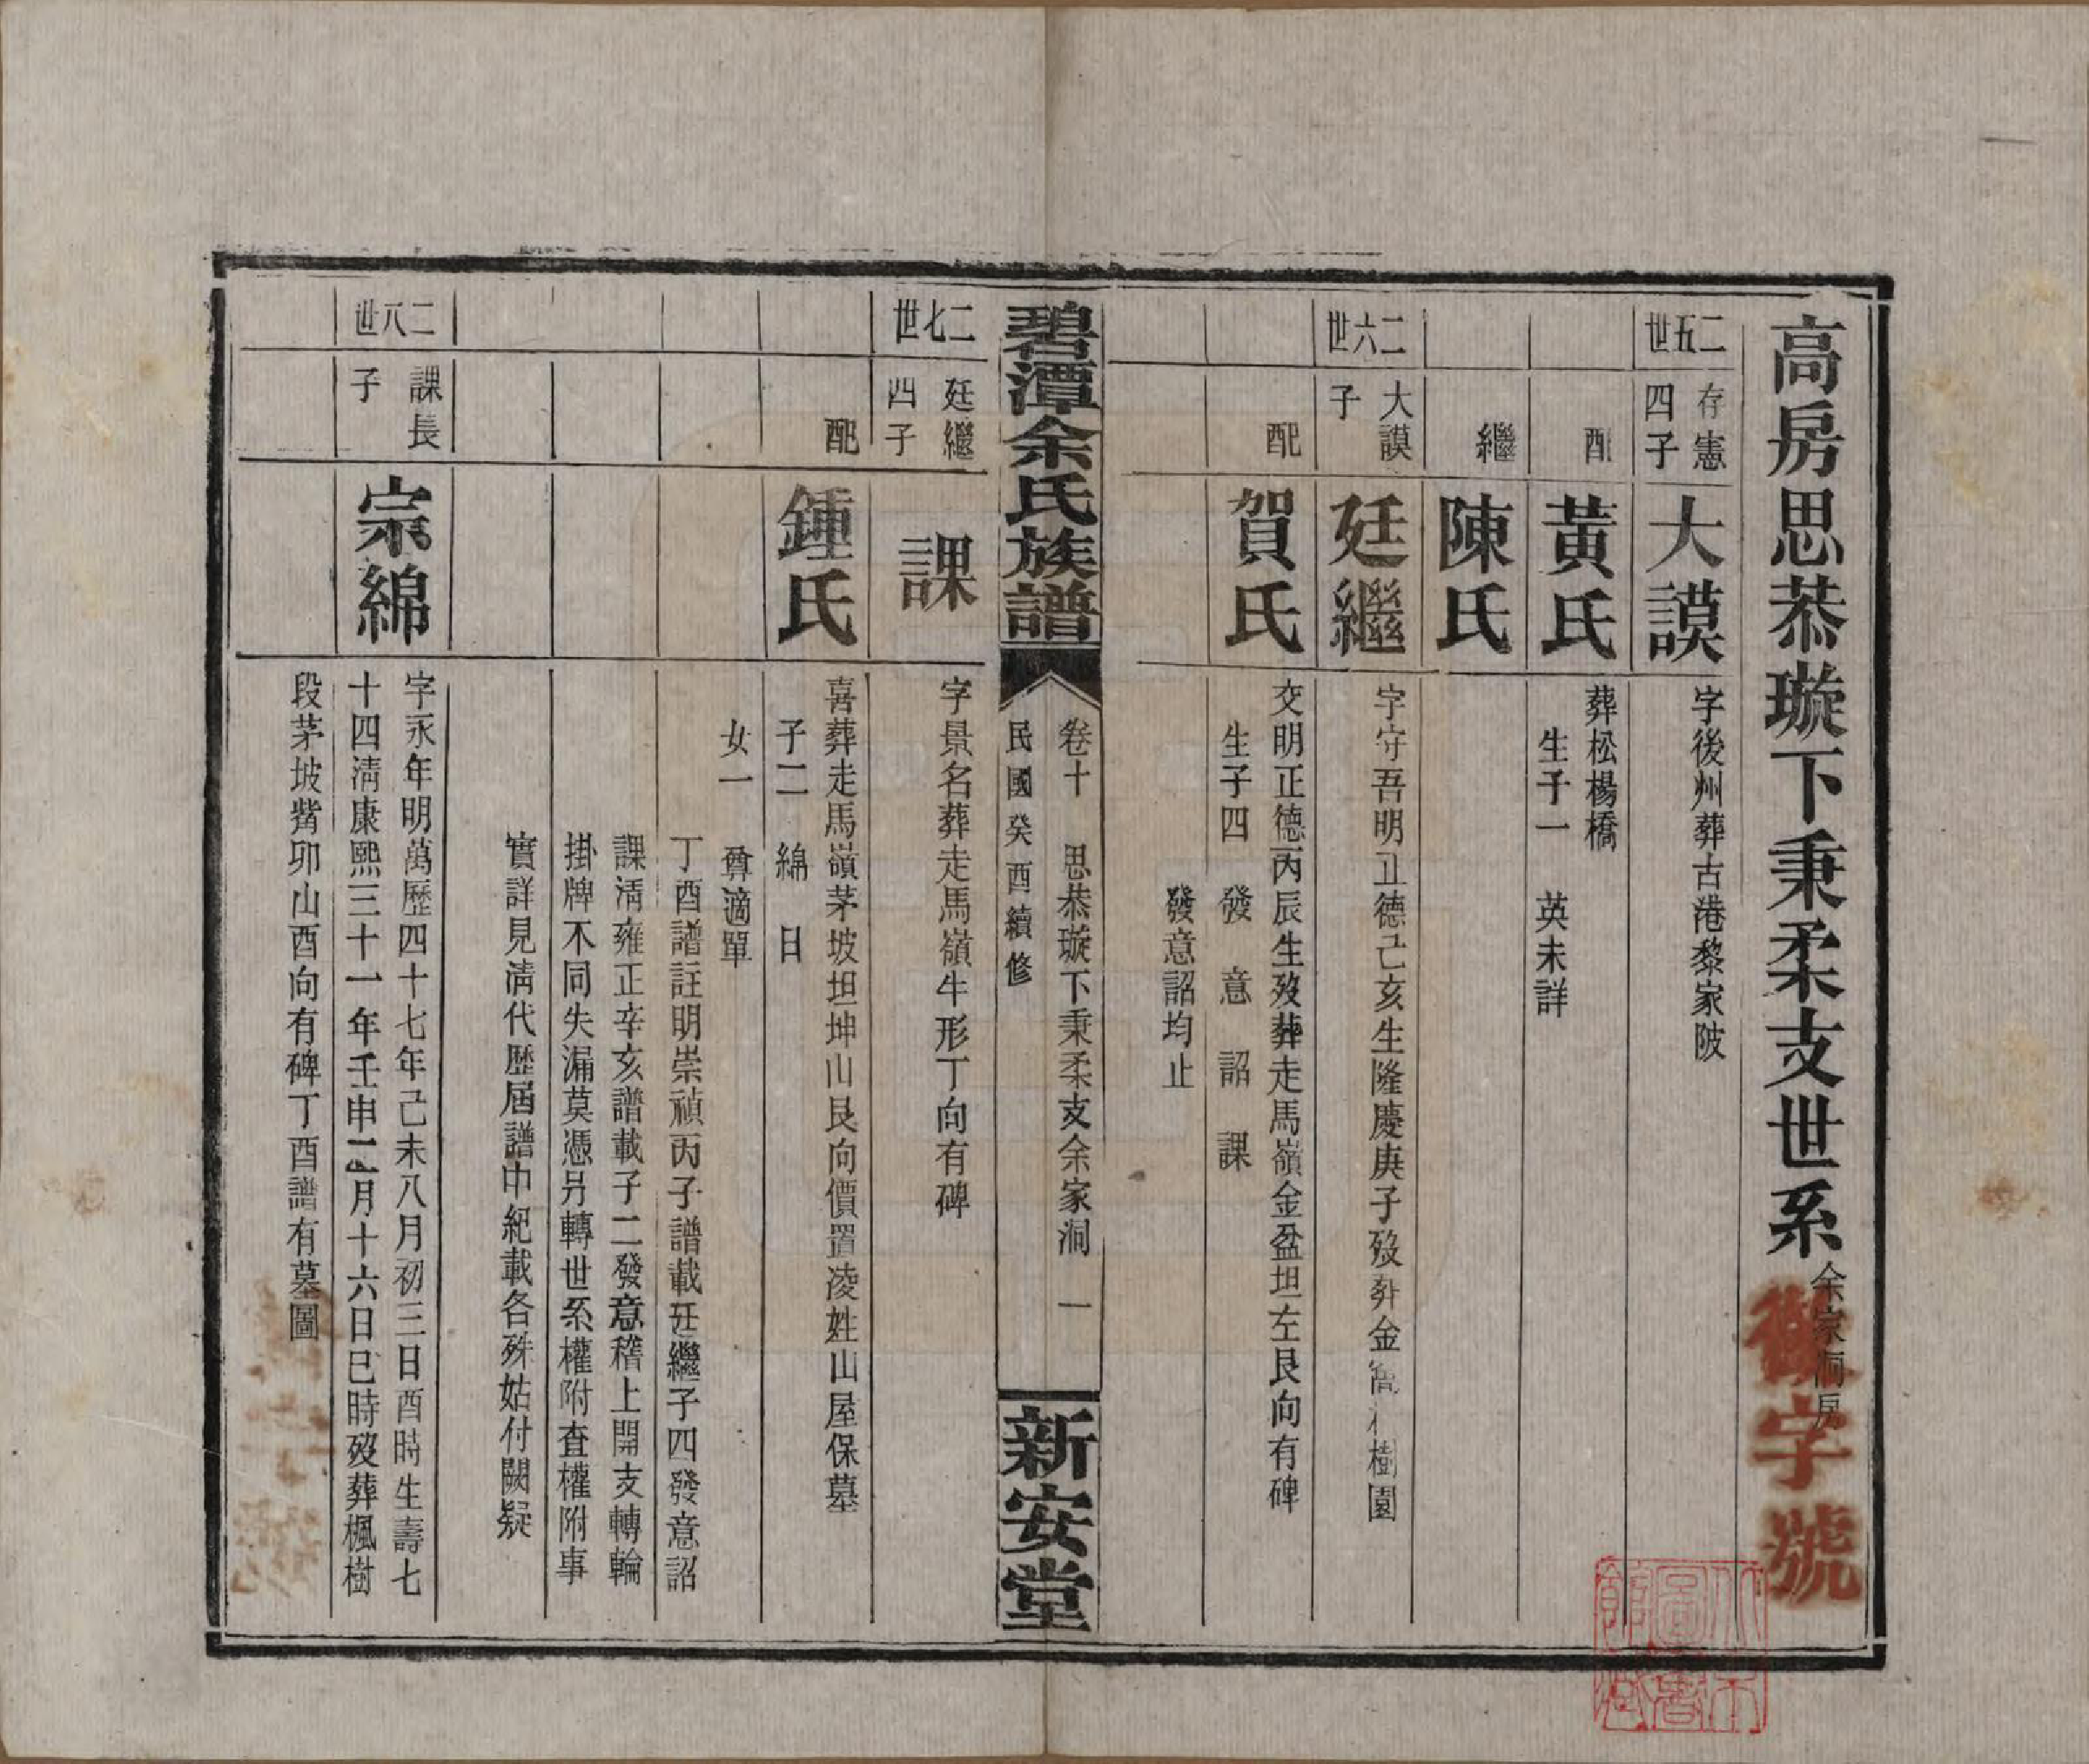 高房思恭璇下秉柔支世系 余家洞房
字號
二五世
存憲四子
大謨
字後州葬古港黎家陂
配
黃氏
葬松楊橋
生子一 英未詳
繼
陳氏
二六世
大謨子
廷繼
字守吾明正德己亥生隆慶庚子歿葬金樹園
配
賀氏
交明正德丙辰生歿葬走馬嶺金盆坦左艮向有碑
生子四 發 意 詔 課
發意詔均止
碧潭余氏族譜
卷十 思恭璇下秉柔支余家洞 一
民國癸酉續修
新安堂
二七世
廷繼四子
課
字景名葬走馬嶺牛形丁向有碑
配
鍾氏
喜葬走馬嶺茅坡坦坤山艮向價置凌姓山屋保墓
子二 綿 日
女一 尊適單
丁酉譜註明崇禎丙子譜載廷繼子四發意詔
課淸雍正辛亥譜載子二發意稽上開支轉輪
掛牌不同失漏莫憑另轉世系權附查權附事
實詳見淸代歷屆譜中紀載各殊姑付闕疑
二八世
課長子
宗綿
字永年明萬歷四十七年己未八月初三日酉時生壽七
十四淸康熙三十一年壬申二月十六日巳時歿葬楓樹
段茅坡觜卯山酉向有碑丁酉譜有墓圖